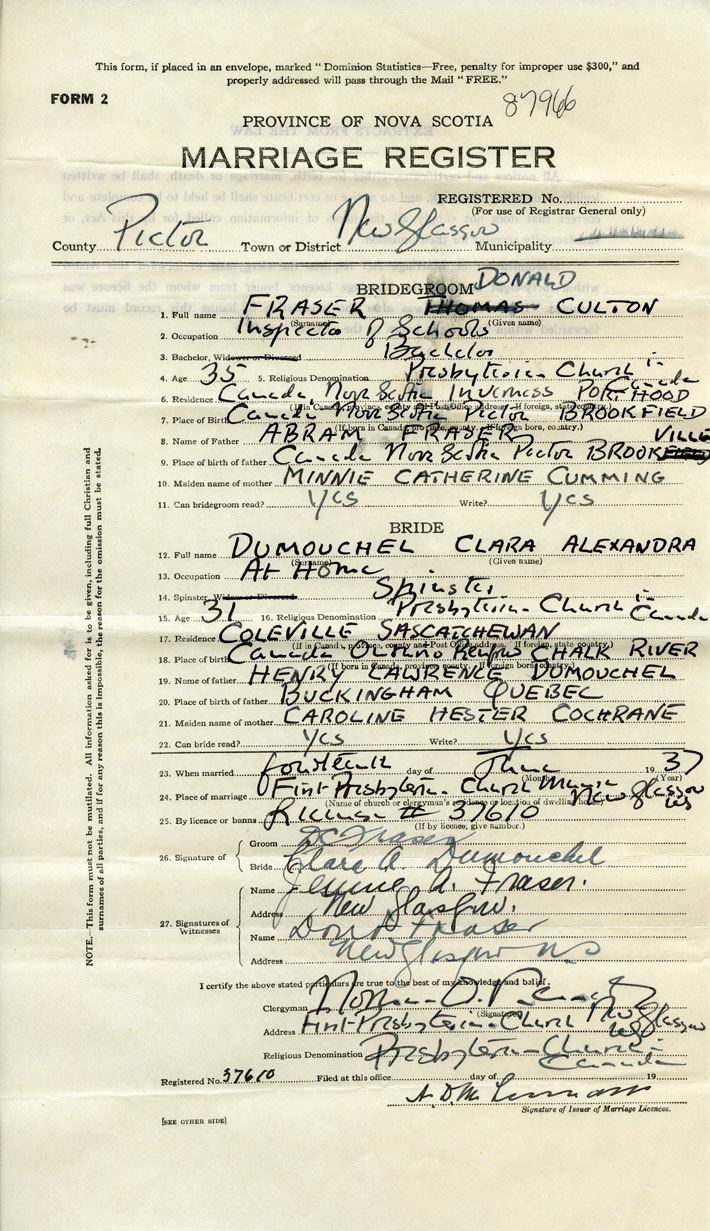 This form, if placed in an envelope, marked “ Dominion Statistics—Free, penalty for improper use $300,” and
properly addressed will pass through the Mail “ FREE.”
FORM 2
87966
PROVINCE OF NOVA SCOTIA
MARRIAGE REGISTER
REGISTERED No.
(For use of Registrar General only)
County Pictou Town or District New Glasgow Municipality
BRIDEGROOM DONALD
1. Full name FRASER THOMAS CULTON
(Surname) (Given name)
2. Occupation Inspector of Schools
3. Bachelor, Widower or Divorced Bachelor
4. Age 35 5. Religious Denomination Presbyterian Church in Canada
6. Residence Canada, Nova Scotia, Inverness PORT HOOD
(If in Canada, province, county and Post Office address. If foreign, state, country.)
7. Place of Birth Canada Nova Scotia Pictou BROOKFIELD
(If born in Canada, province, county. If foreign born, country.)
8. Name of Father ABRAM FRASER
9. Place of birth of father Canada Nova Scotia Pictou BROOKFIELD VILLE
10. Maiden name of mother MINNIE CATHERINE CUMMING
11. Can bridegroom read? yes Write? yes
BRIDE
12. Full name DUMOUCHEL CLARA ALEXANDRA
(Surname) (Given name)
13. Occupation At Home
14. Spinster, Widow or Divorced Spinster
15. Age 31 16. Religious Denomination Presbyterian Church in Canada
17. Residence COLEVILLE SASCATCHEWAN
(If in Canada, province, county and Post Office address. If foreign, state, country.)
18. Place of birth Canada Ontario Renfrew CHALK RIVER
(If born in Canada, province, county. If foreign born, country.)
19. Name of father HENRY LAWRENCE DUMOUCHEL
20. Place of birth of father BUCKINGHAM QUEBEC
21. Maiden name of mother CAROLINE HESTER COCHRANE
22. Can bride read? yes Write? yes
23. When married fourteenth day of June 1937
(Month) (Year)
24. Place of marriage First Presbyterian Church Manse New Glasgow NS
(Name of church or clergyman's residence or location of dwelling house)
25. By licence or banns License # 37610
(If by licence, give number.)
26. Signature of
Groom DC Fraser
Bride Clara A. Dumouchel
27. Signatures of Witnesses
Name A. Fraser.
Address New Glasgow.
Name Fraser
Address New Glasgow N S
I certify the above stated particulars are true to the best of my knowledge and belief.
Clergyman Norman D.
(Signature)
Address First Presbyterian Church New Glasgow NS
Religious Denomination Presbyterian Church in Canada
Registered No. 37610 Filed at this office day of 19
Signature of Issuer of Marriage Licences.
[SEE OTHER SIDE]
NOTE.—This form must not be mutilated. All information asked for is to be given, including full Christian and
surnames of all parties, and if for any reason this is impossible, the reason for the omission must be stated.